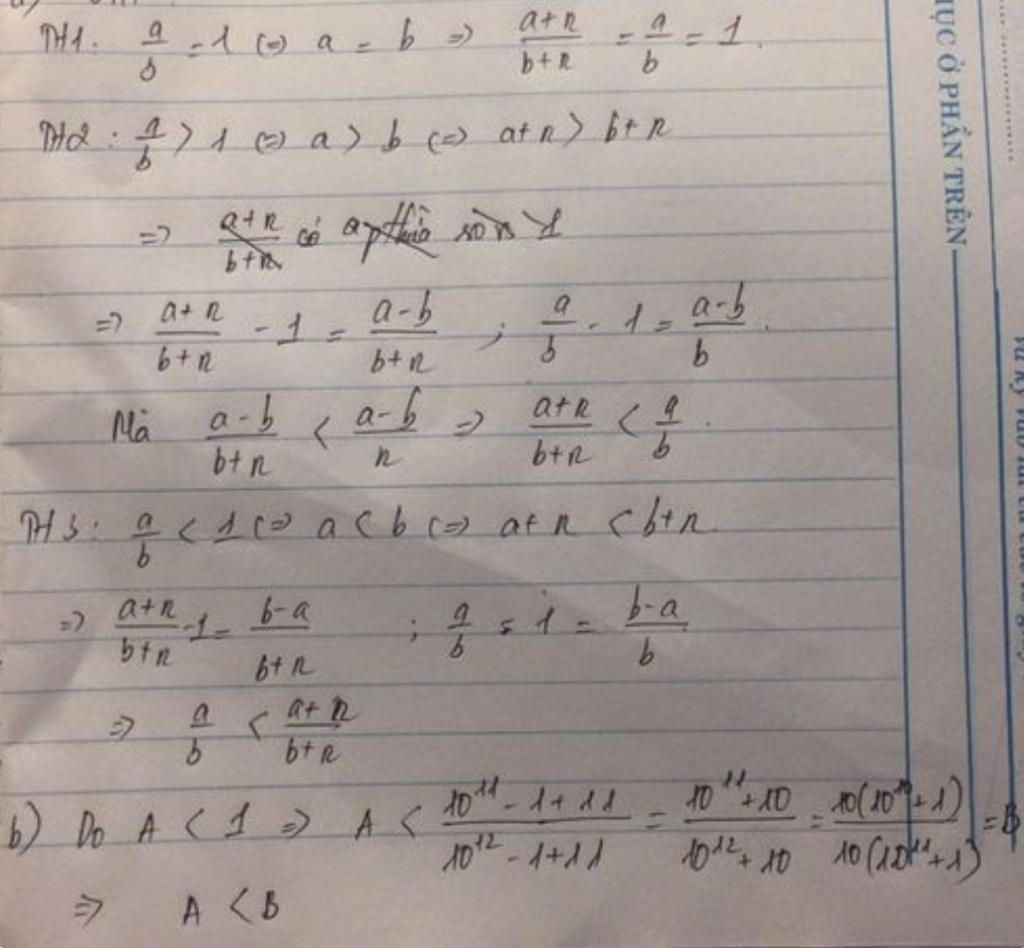 TH1: a/b = 1 (=) a = b => (a+n)/(b+n) = a/b = 1.
TH2: a/b > 1 (=) a > b (=) a+n > b+n
=> (a+n)/(b+n) có 1
=> (a+n)/(b+n) - 1 = (a-b)/(b+n) ; a/b - 1 = (a-b)/b.
Mà (a-b)/(b+n) < (a-b)/n => (a+n)/(b+n) < a/b.
TH3: a/b < 1 (=) a < b (=) a+n < b+n
=> (a+n)/(b+n) - 1 = (b-a)/(b+n) ; a/b = 1 = (b-a)/b
=> a/b < (a+n)/(b+n)
b) Do A < 1 => A < (10^11 - 1 + 11)/(10^12 - 1 + 11) = (10^11 + 10)/(10^12 + 10) = 10(10^10 + 1)/10(10^11 + 1) = B
=> A < B
ỤC Ở PHẦN TRÊN